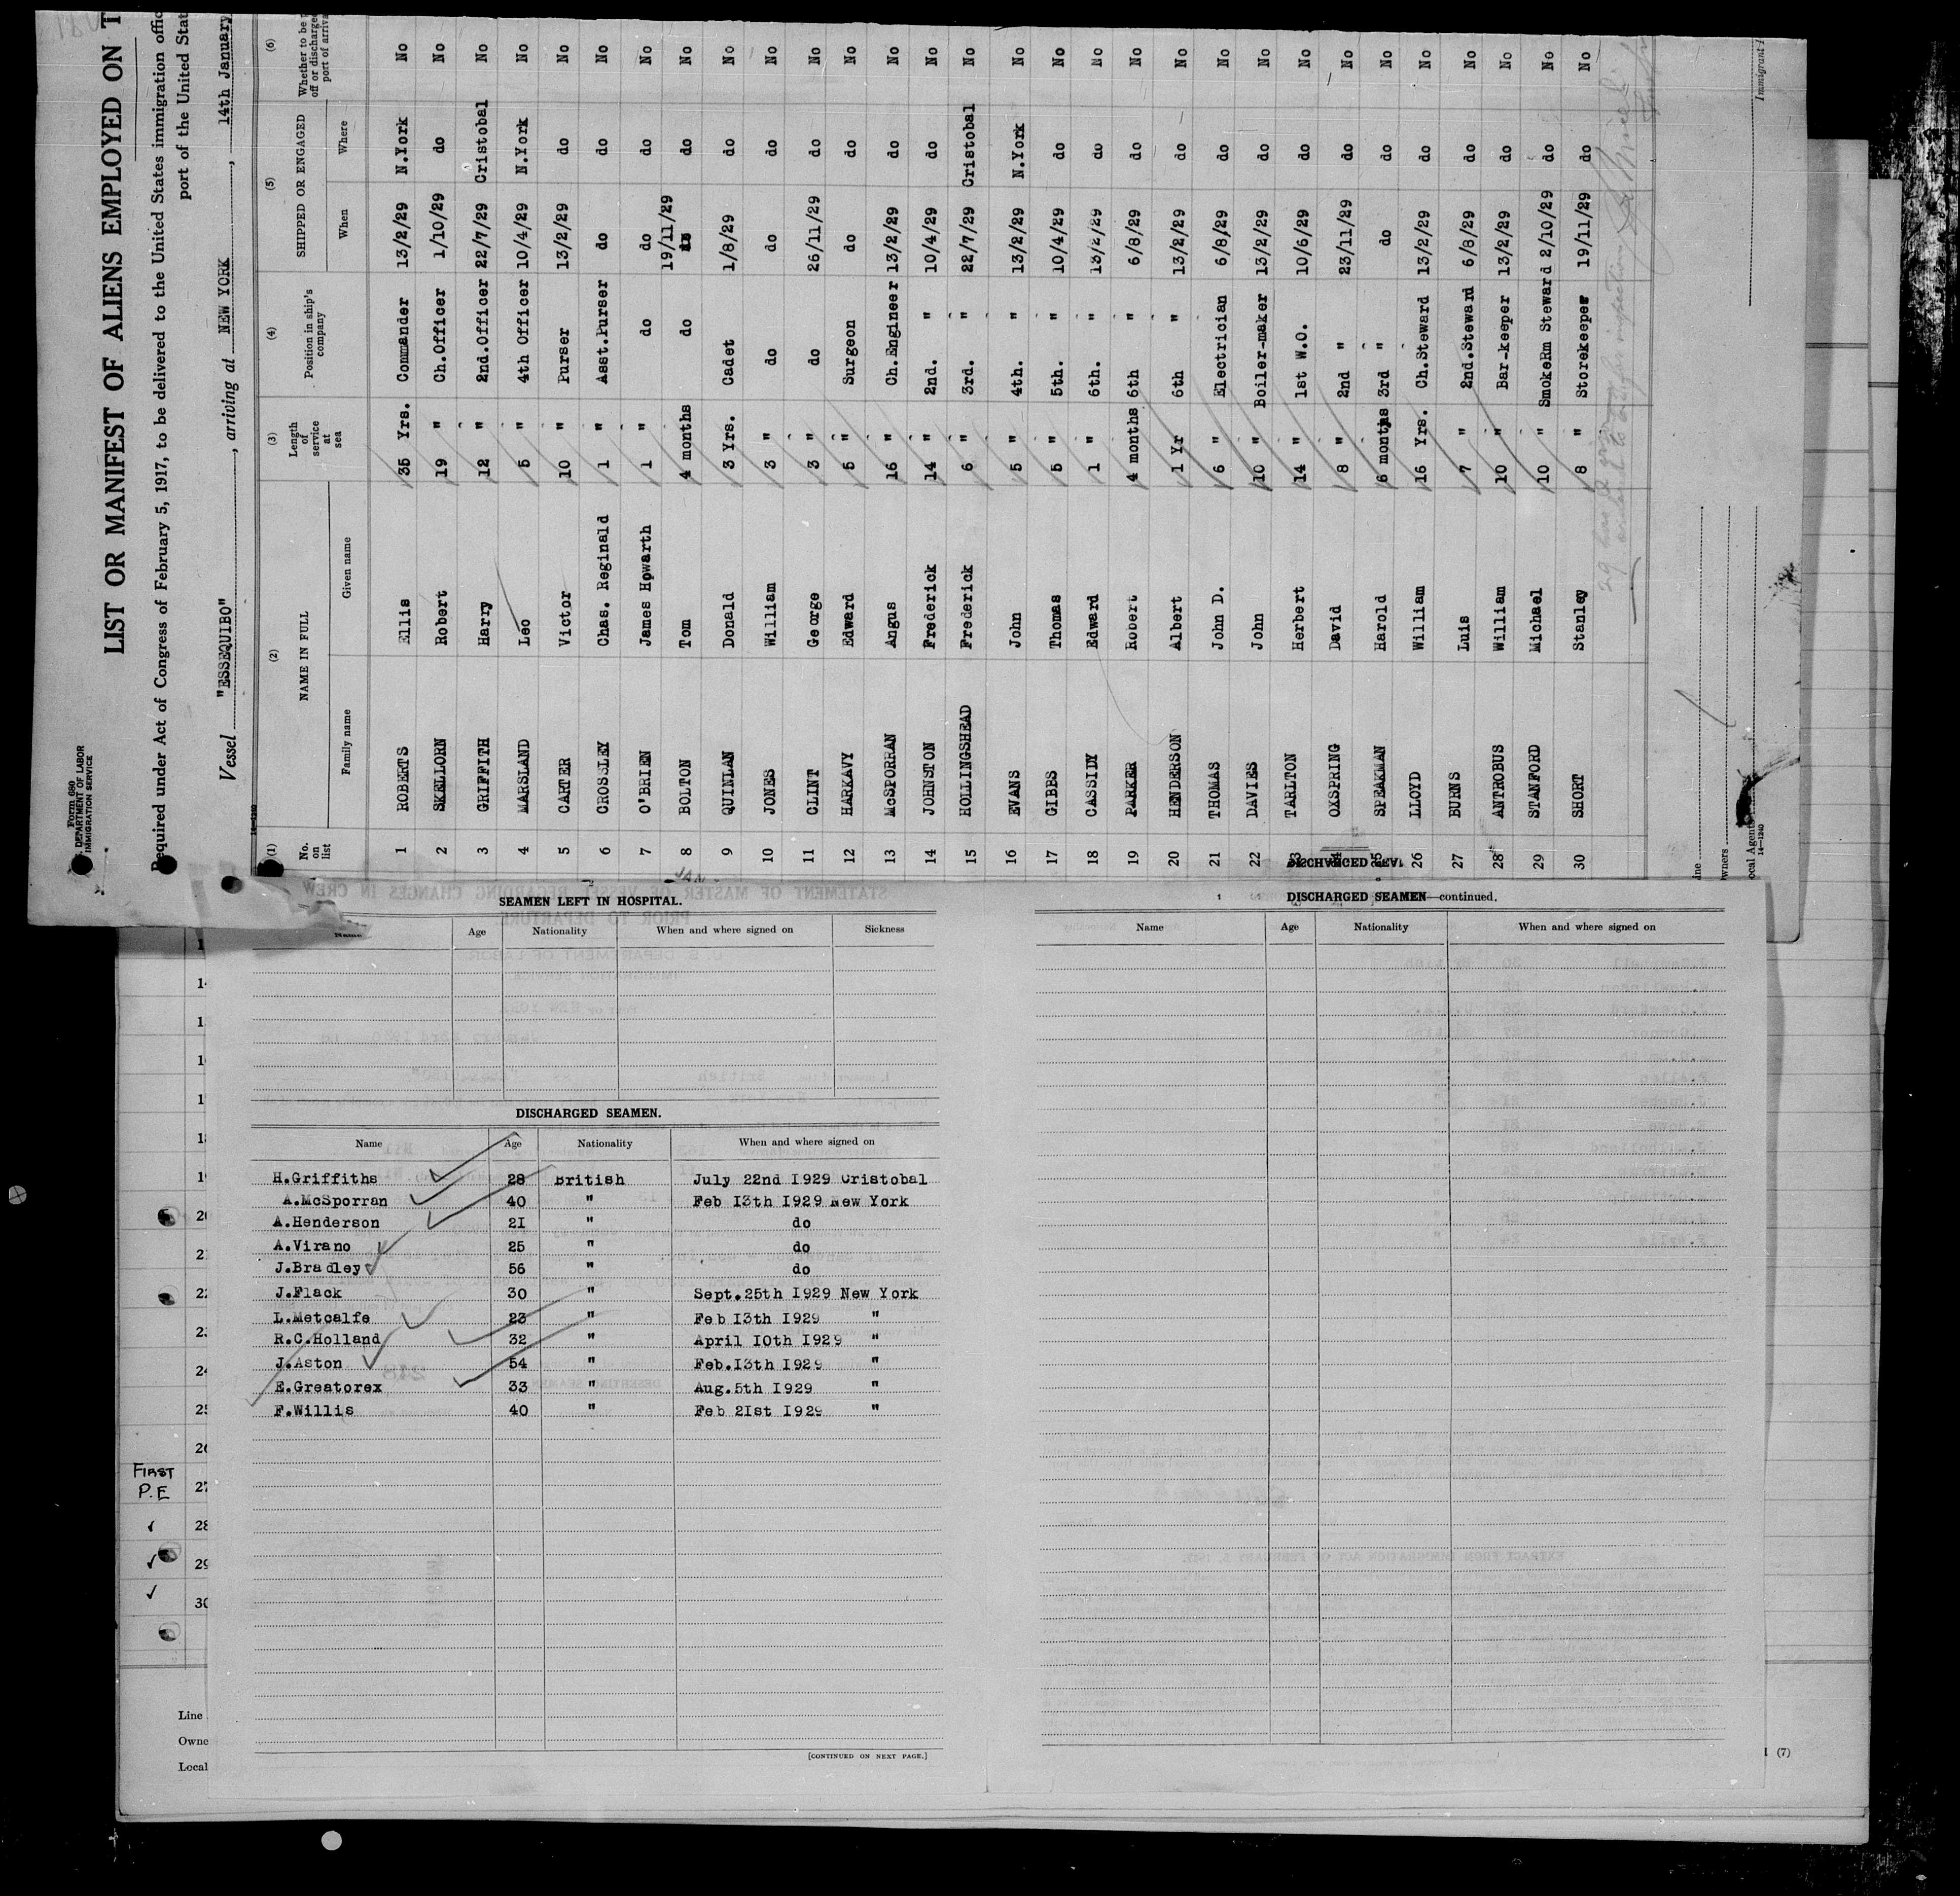 Form 680
DEPARTMENT OF LABOR
IMMIGRATION SERVICE
LIST OR MANIFEST OF ALIENS EMPLOYED ON T
Required under Act of Congress of February 5, 1917, to be delivered to the United States immigration offic
port of the United Stat
Vessel "ESSEQUIBO", arriving at NEW YORK, 14th January
(1) (2) (3) (4) (5) (6)
No. on list NAME IN FULL Length of service at sea Position in ship's company SHIPPED OR ENGAGED Whether to be off or discharged port of arrival
Family name Given name When Where
1 ROBERTS Ellis 35 Yrs. Commander 13/2/29 N.York No
2 SKELLORN Robert 19 " Ch.Officer 1/10/29 do No
3 GRIFFITH Harry 12 " 2nd.Officer 22/7/29 Cristobal No
4 MARSLAND Leo 5 " 4th Officer 10/4/29 N.York No
5 CARTER Victor 10 " Purser 13/2/29 do No
6 CROSSLEY Chas. Reginald 1 " Asst.Purser do do No
7 O'BRIEN James Howarth 1 " do do do No
8 BOLTON Tom 4 months do 19/11/29 do No
9 QUINLAN Donald 3 Yrs. Cadet 1/8/29 do No
10 JONES William 3 " do do do No
11 CLINT George 3 " do 26/11/29 do No
12 HARKAVY Edward 5 " Surgeon do do No
13 McSPORRAN Angus 16 " Ch.Engineer 13/2/29 do No
14 JOHNSTON Frederick 14 " 2nd. " 10/4/29 do No
15 HOLLINGSHEAD Frederick 6 " 3rd. " 22/7/29 Cristobal No
16 EVANS John 5 " 4th. " 13/2/29 N.York No
17 GIBBS Thomas 5 " 5th. " 10/4/29 do No
18 CASSIDY Edward 1 " 6th. " 13/2/29 do No
19 PARKER Robert 4 months 6th " 6/8/29 do No
20 HENDERSON Albert 1 Yr 6th " 13/2/29 do No
21 THOMAS John D. 6 " Electrician 6/8/29 do No
22 DAVIES John 10 " Boiler-maker 13/2/29 do No
23 TARLTON Herbert 14 " 1st W.O. 10/6/29 do No
24 OXSPRING David 8 " 2nd " 23/11/29 do No
25 SPEAKMAN Harold 6 months 3rd " do do No
26 LLOYD William 16 Yrs. Ch.Steward 13/2/29 do No
27 BURNS Luis 7 " 2nd.Steward 6/8/29 do No
28 ANTROBUS William 10 " Bar-keeper 13/2/29 do No
29 STANFORD Michael 10 " SmokeRm Steward 2/10/29 do No
30 SHORT Stanley 8 " Storekeeper 19/11/29 do No
ocal Agents
14—1240
SEAMEN LEFT IN HOSPITAL.
Name Age Nationality When and where signed on Sickness
DISCHARGED SEAMEN.
Name Age Nationality When and where signed on
H.Griffiths 28 British July 22nd I929 Cristobal
A.McSporran 40 " Feb I3th I929 New York
A.Henderson 2I " do
A.Virano 25 " do
J.Bradley 56 " do
J.Flack 30 " Sept.25th I929 New York
L.Metcalfe 23 " Feb I3th I929 "
R.C.Holland 32 " April I0th I929 "
J.Aston 54 " Feb.I3th I929 "
E.Greatorex 33 " Aug.5th I929 "
F.Willis 40 " Feb 2Ist I929 "
[CONTINUED ON NEXT PAGE.]
DISCHARGED SEAMEN—continued.
Name Age Nationality When and where signed on
FIRST
P.E
27
28
29
30
Line
Owne
Local
(7)